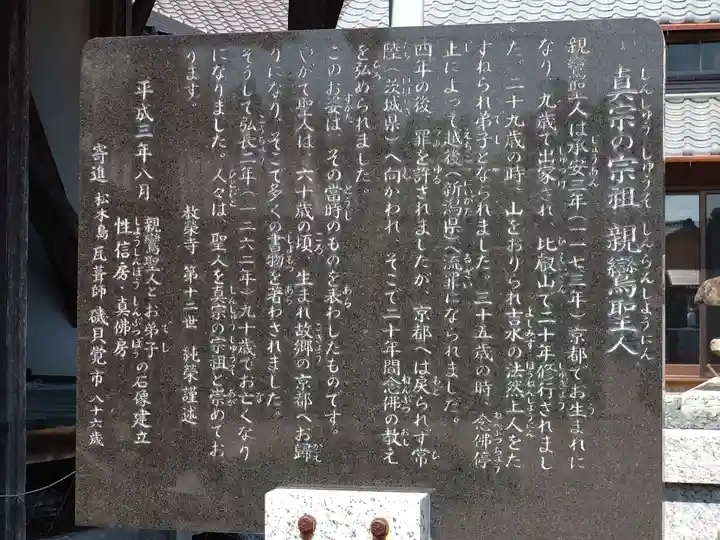 真宗の宗祖 親鸞聖人
親鸞聖人は承安三年（一一七三年）京都でお生まれに
なり、九歳で出家され、比叡山で二十年修行されまし
た。二十九歳の時、山をおりられ吉水の法然上人をた
ずねられ弟子となられました。三十五歳の時、念佛停
止によって越後（新潟県）へ流罪になられました。
四年の後、罪を許されましたが、京都へは戻られず常
陸（茨城県）へ向かわれ、そこで二十年間念佛の教え
を弘められました。
このお姿は、その当時のものを表わしたものです。
やがて聖人は、六十歳の頃、生まれ故郷の京都へお歸
りになり、そこで多くの書物を著わされました。
そうして弘長二年（一二六二年）九十歳でお亡くなり
になりました。人々は、聖人を真宗の宗祖と崇めてお
ります。
教榮寺 第十二世 純榮謹述
平成三年八月 親鸞聖人とお弟子の石像建立
性信房、真佛房
寄進 松木島 瓦葺師 磯貝覚市 八十六歳